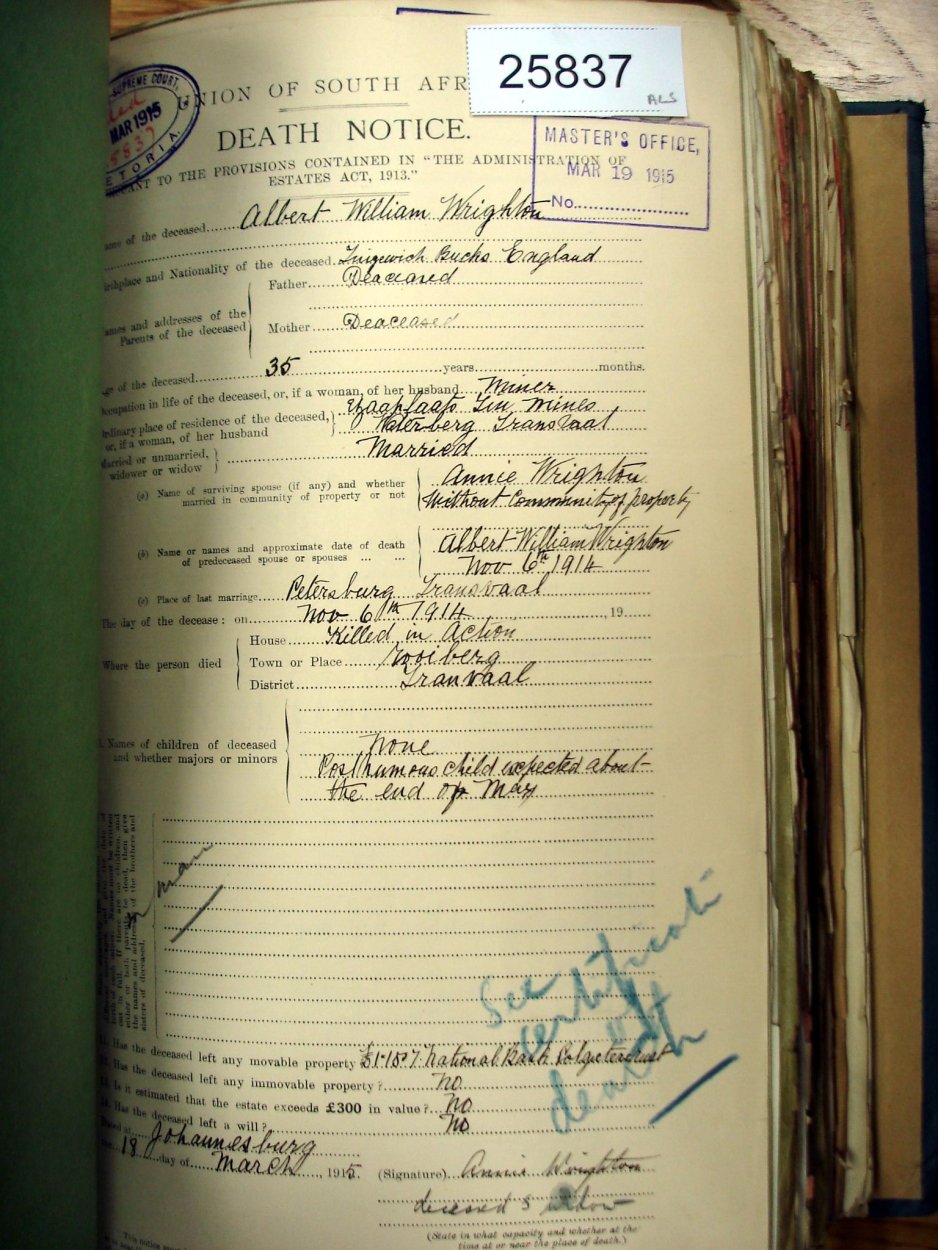 25837
ALS
SUPREME COURT,
MAR 1915
25837
ETORIA
UNION OF SOUTH AFR
DEATH NOTICE.
MASTER'S OFFICE,
MAR 19 1915
No.
ANT TO THE PROVISIONS CONTAINED IN "THE ADMINISTRATION OF
ESTATES ACT, 1913."
ame of the deceased Albert William Wrighton
irthplace and Nationality of the deceased. Bucks England
ames and addresses of the
Parents of the deceased
Father Deaceased
Mother Deaceased
ge of the deceased 35 years months.
ccupation in life of the deceased, or, if a woman, of her husband Miner
rdinary place of residence of the deceased,
or, if a woman, of her husband
Tin Mines
Waterberg Transvaal
arried or unmarried,
widower or widow
Married
(a) Name of surviving spouse (if any) and whether
married in community of property or not
Annie Wrighton
Without Community of property
(b) Name or names and approximate date of death
of predeceased spouse or spouses ... ...
Albert William Wrighton
Nov 6th 1914
(c) Place of last marriage Petersburg Transvaal
The day of the decease: on Nov 6th 1914 , 19
Where the person died
House Killed in Action
Town or Place Rooiberg
District Tranvaal
Names of children of deceased
and whether majors or minors
None
Posthumous child expected about
the end of May
out in full. If there are no children, and
either or both parents be dead, then give
the names and addresses of the brothers and
sisters of deceased.
See
certificate
of
death
Has the deceased left any movable property National Bank
Has the deceased left any immovable property? No
Is it estimated that the estate exceeds £300 in value? No
Has the deceased left a will? No
Dated at Johannesburg
18 day of March , 1915.
(Signature) Annie Wrighton
deceased s widow
(State in what capacity and whether at the
time at or near the place of death.)
This notice